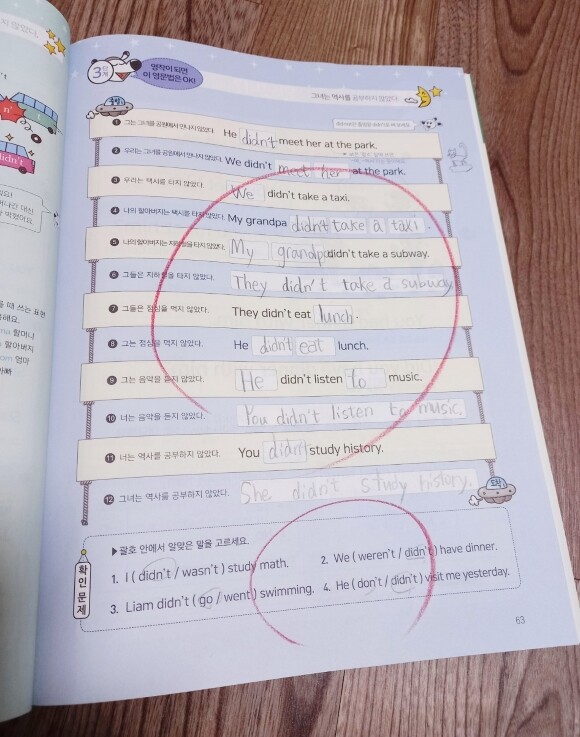 3단계
영작이 되면
이 영문법은 OK!
그녀는 역사를 공부하지 않았다.
출발
① 그는 그녀를 공원에서 만나지 않았다. He didn't meet her at the park.
② 우리는 그녀를 공원에서 만나지 않았다. We didn't meet her at the park.
③ 우리는 택시를 타지 않았다. We didn't take a taxi.
④ 나의 할아버지는 택시를 타지 않았다. My grandpa didn't take a taxi.
⑤ 나의 할아버지는 지하철을 타지 않았다. My grandpa didn't take a subway.
⑥ 그들은 지하철을 타지 않았다. They didn't take a subway
⑦ 그들은 점심을 먹지 않았다. They didn't eat lunch.
⑧ 그는 점심을 먹지 않았다. He didn't eat lunch.
⑨ 그는 음악을 듣지 않았다. He didn't listen to music.
⑩ 너는 음악을 듣지 않았다. You didn't listen to music.
⑪ 너는 역사를 공부하지 않았다. You didn't study history.
⑫ 그녀는 역사를 공부하지 않았다. She didn't study history.
도착
확인문제
▶괄호 안에서 알맞은 말을 고르세요.
1. I ( didn't / wasn't ) study math. 2. We ( weren't / didn't ) have dinner.
3. Liam didn't ( go / went ) swimming. 4. He ( don't / didn't ) visit me yesterday.
63